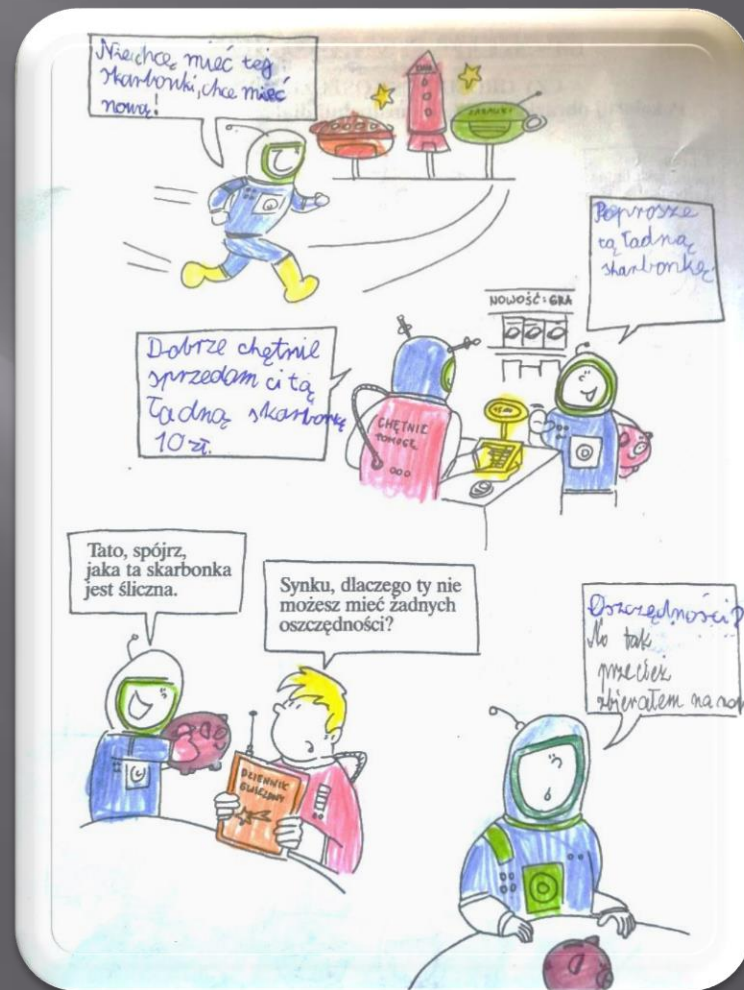 Nie chcę mieć tej
skarbonki, chce mieć
nową!
BANK
ZABAWKI
Poprosze
tą ładną
skarbonkę
NOWOŚĆ: GRA
Dobrze chętnie
sprzedam ci tą
ładną skarbonkę
10 zł.
CHĘTNIE
POMOGĘ
Tato, spójrz,
jaka ta skarbonka
jest śliczna.
Synku, dlaczego ty nie
możesz mieć żadnych
oszczędności?
DZIENNIK
GWIEZDNY
Oszczędności?
No tak
przecież
zbierałem na